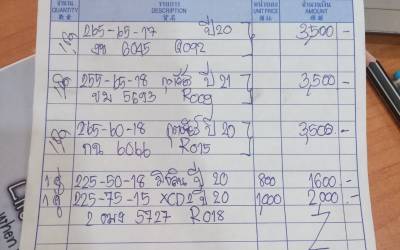 จำนวน QUANTITY รายการ DESCRIPTION หน่วยละ UNIT PRICE จำนวนเงิน AMOUNT
1ชุด 265-65-17 ปี 20 3,500 -
6045 G092
1ชุด 255-65-18 ปี 21 3,500 -
ขม 5693 R009
1ชุด 265-60-18 ปี 20 3,500 -
กน 6066 R015
1คู่ 225-50-18 มิชลิน ปี 20 800 1600 -
1คู่ 225-75-15 XCD2 ปี 20 1,000 2,000 -
5727 R018
when